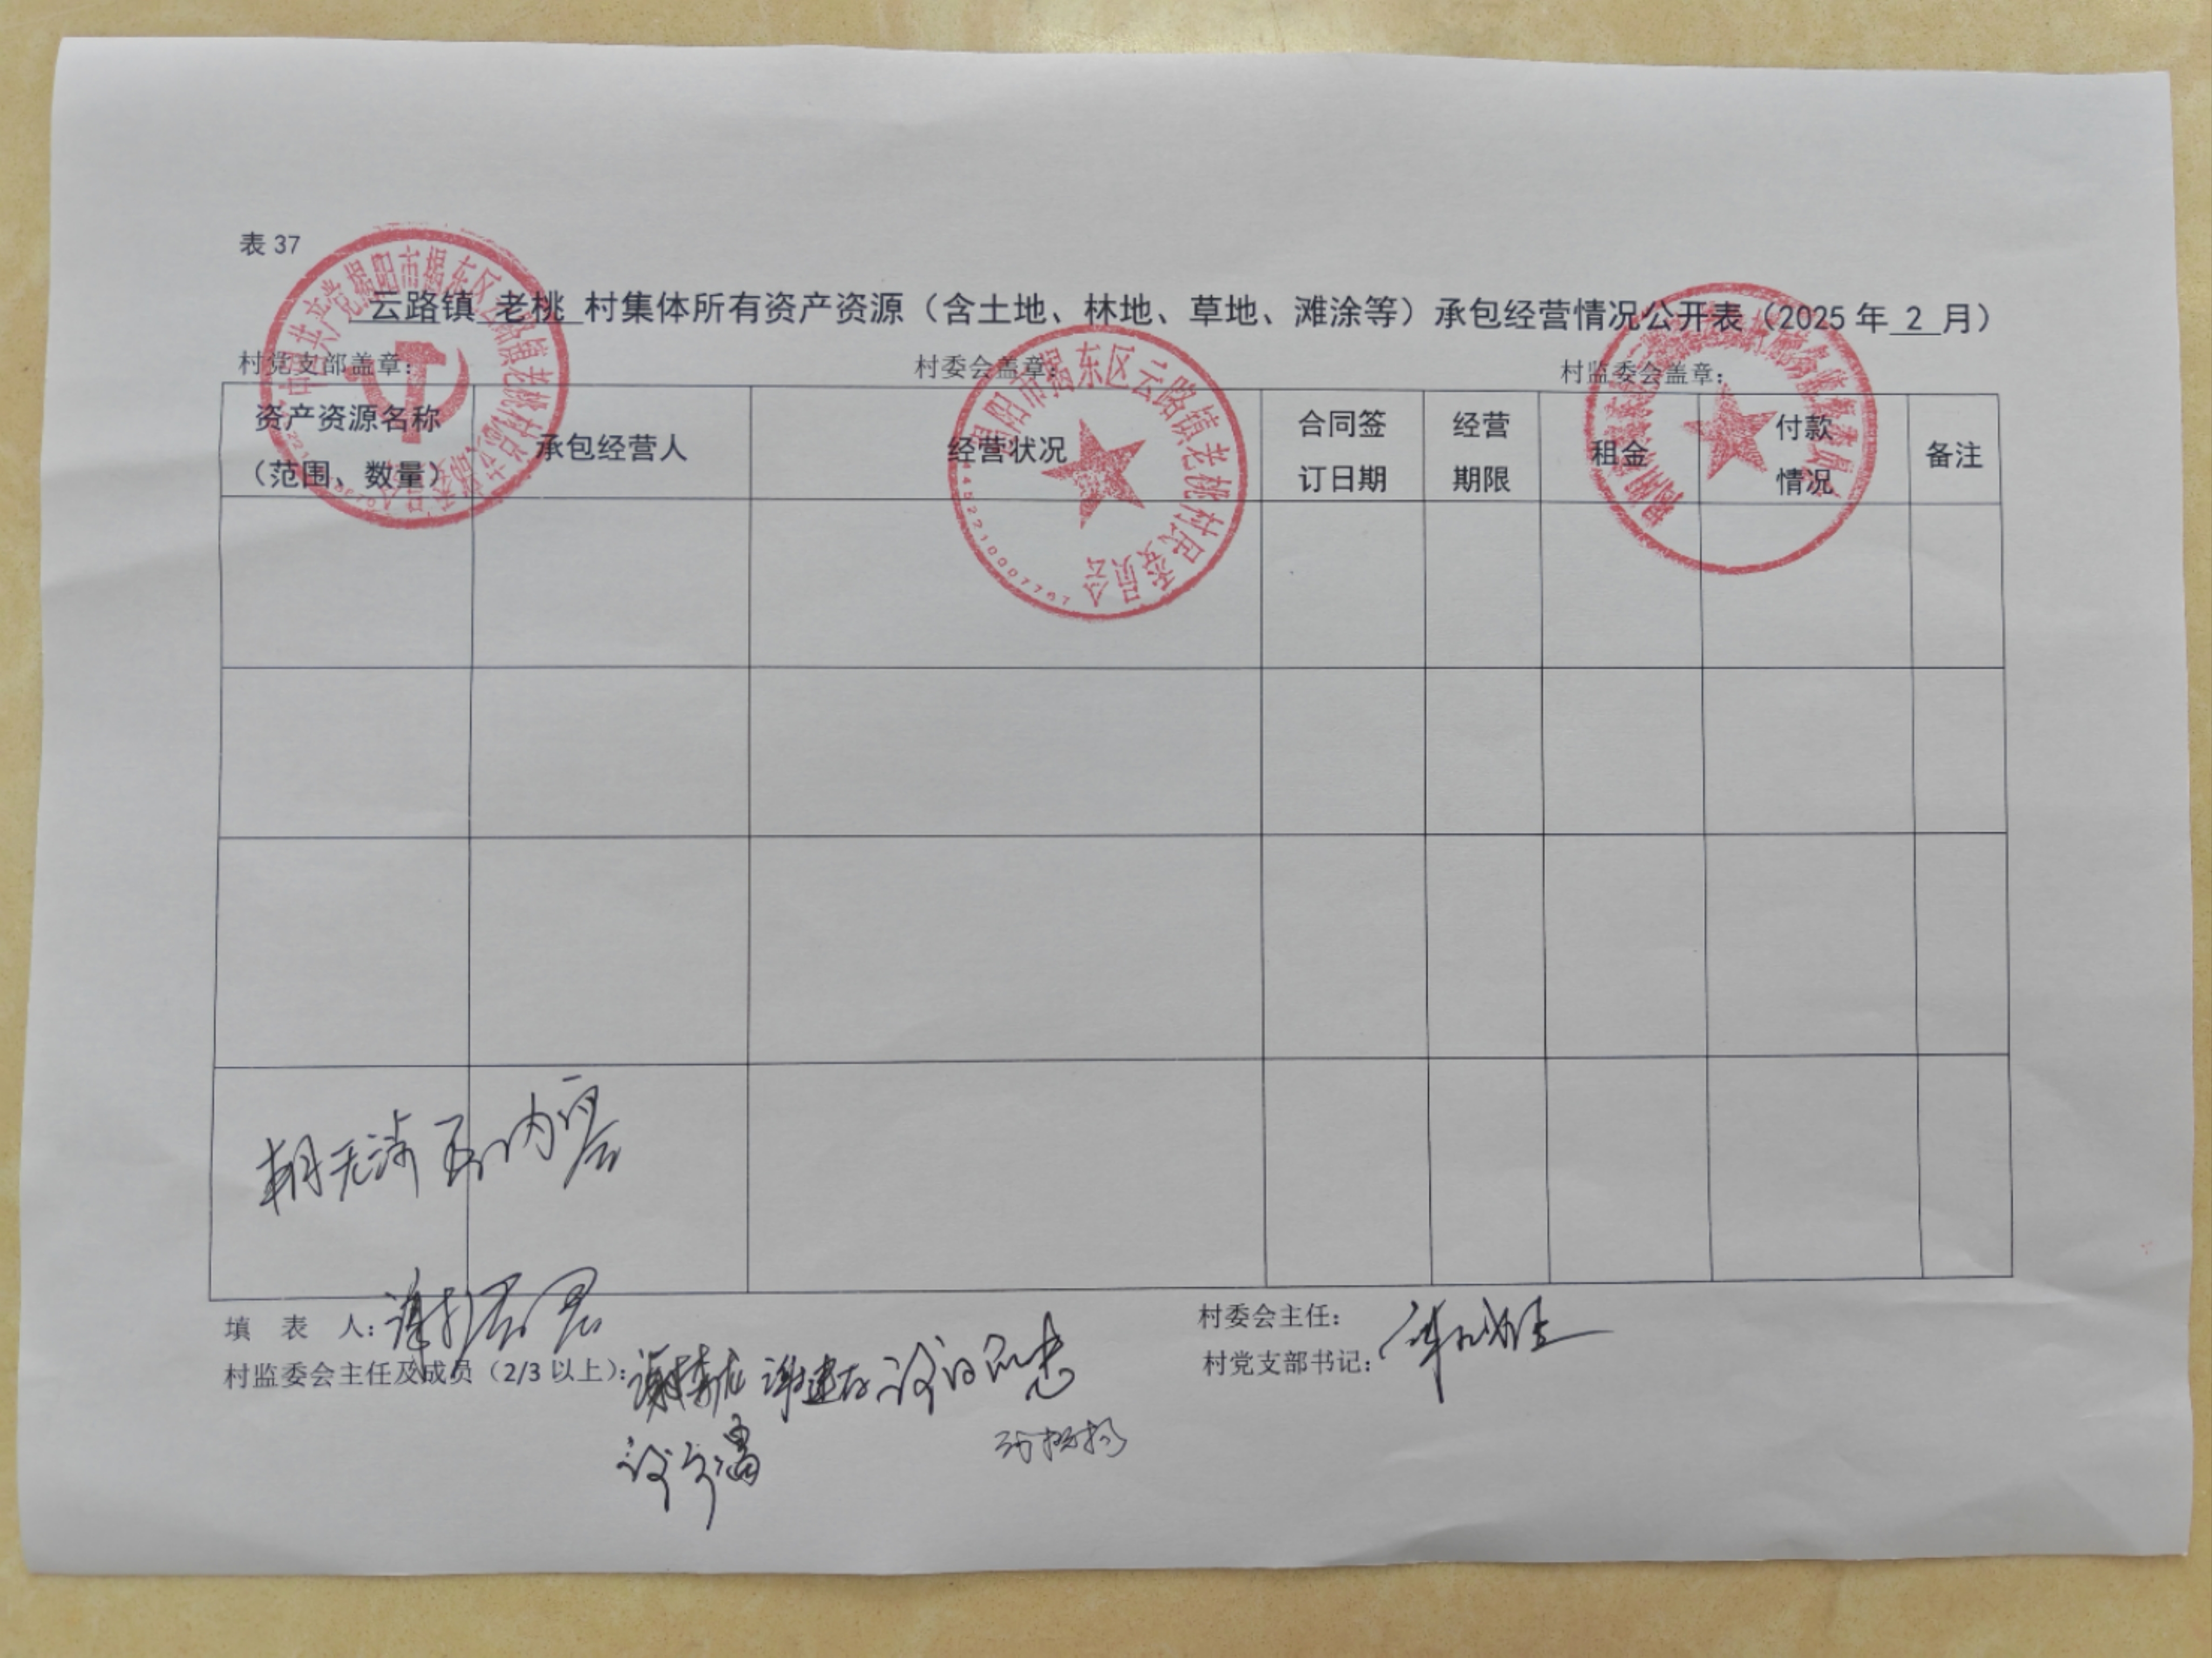 表 37
云路镇 老桃 村集体所有资产资源（含土地、林地、草地、滩涂等）承包经营情况公开表（2025 年 2 月）
村党支部盖章：
村委会盖章：
村监委会盖章：
资产资源名称
（范围、数量）
承包经营人
经营状况
合同签
订日期
经营
期限
租金
付款
情况
备注
中国共产党揭阳市揭东区云路镇老桃村总支部委员会
揭阳市揭东区云路镇老桃村民委员会
4452210007767
内容
填 表 人：
村委会主任：
村监委会主任及成员（2/3 以上）：
村党支部书记：